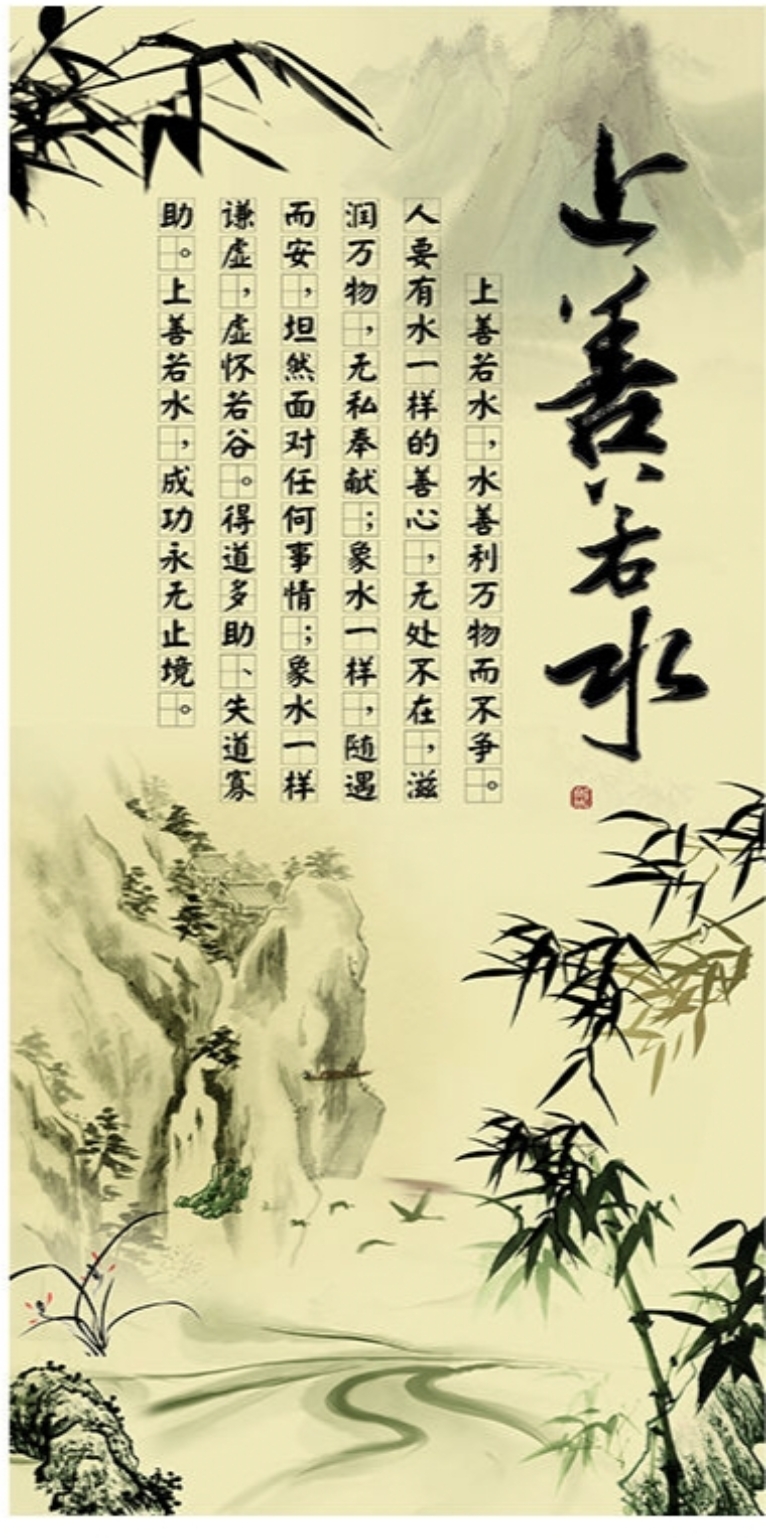 上善若水
上善若水，水善利万物而不争。
人要有水一样的善心，无处不在，滋
润万物，无私奉献；象水一样，随遇
而安，坦然面对任何事情；象水一样
谦虚，虚怀若谷。得道多助、失道寡
助。上善若水，成功永无止境。